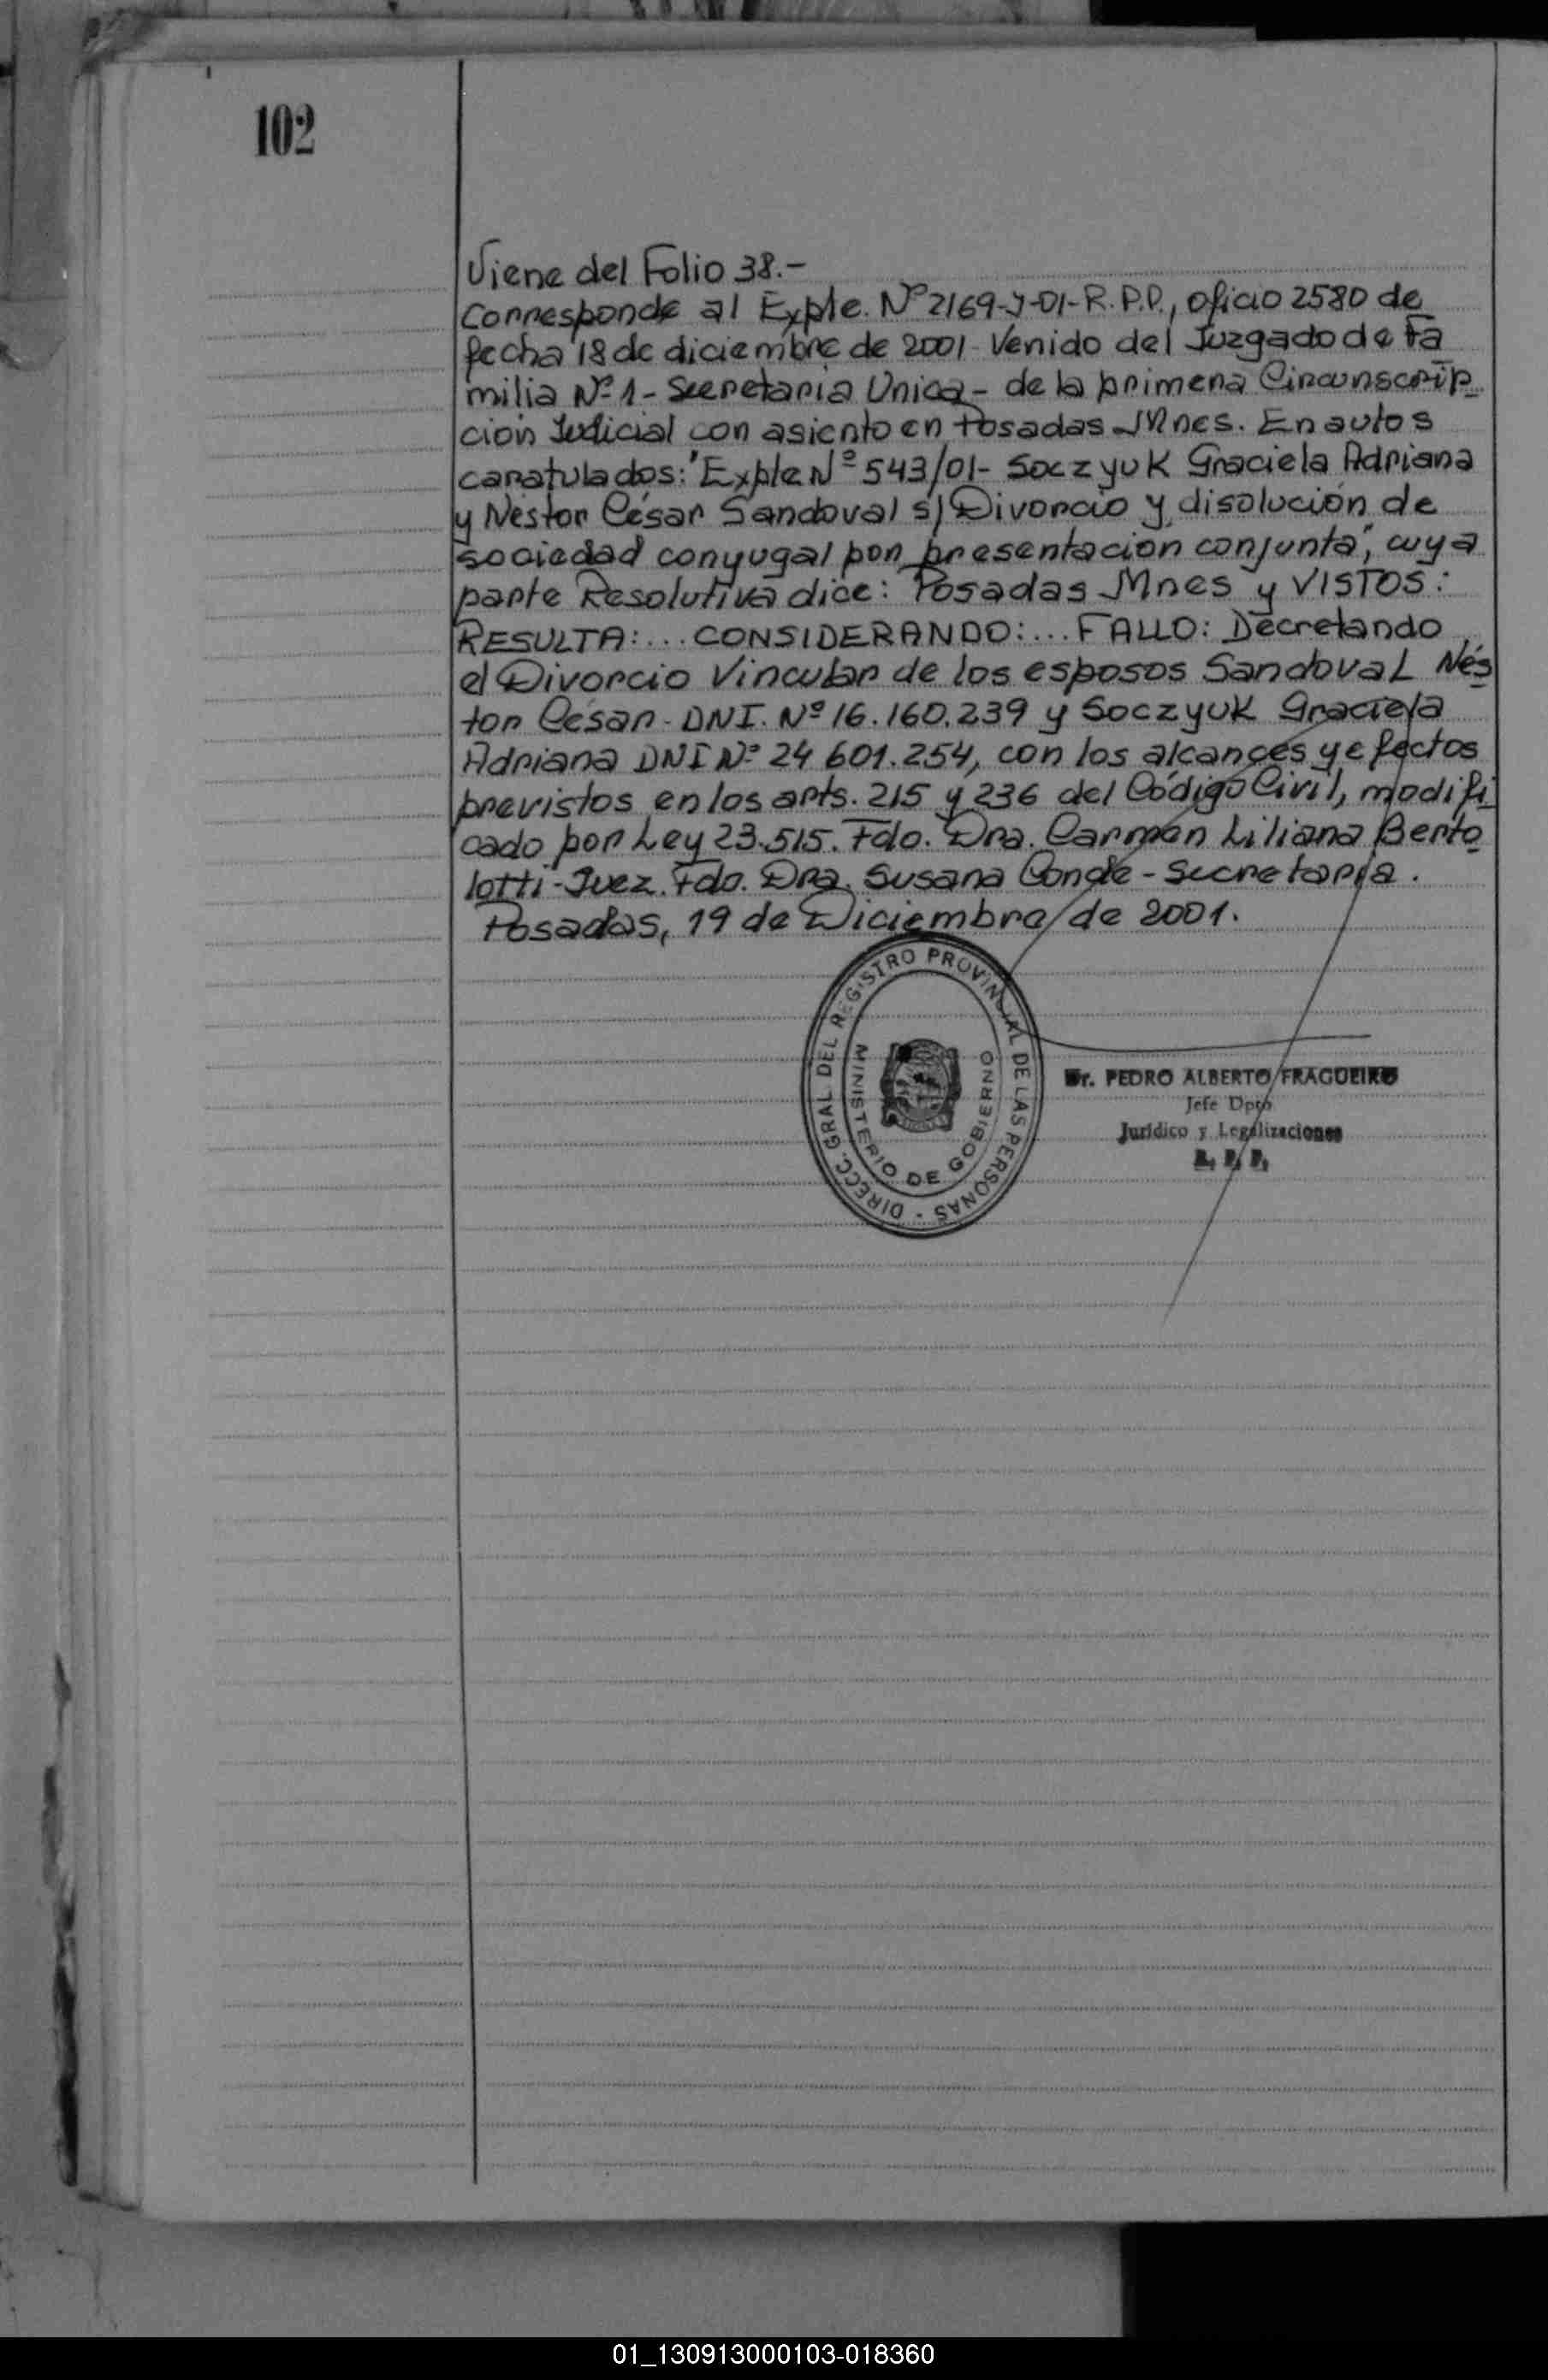 102
Viene del Folio 38.-
Corresponde al Expte. Nº 2169-J-01-R.P.P., oficio 2580 de
fecha 18 de diciembre de 2001- Venido del Juzgado de Fa
milia Nº 1- Secretaria Unica- de la primera Circunscrip
ción Judicial con asiento en Posadas Mnes. En autos
caratulados: "Expte Nº 543/01- Soczyuk Graciela Adriana
y Nestor César Sandoval s/ Divorcio y disolución de
sociedad conyugal por presentacion conjunta", cuya
parte Resolutiva dice: Posadas Mnes y VISTOS:
RESULTA:... CONSIDERANDO:... FALLO: Decretando
el Divorcio Vincular de los esposos Sandoval Nés
tor César- DNI. Nº 16.160.239 y Soczyuk Graciela
Adriana DNI Nº 24 601.254, con los alcances y efectos
previstos en los arts. 215 y 236 del Código Civil, modifi
cado por Ley 23.515. Fdo. Dra. Carmen Liliana Berto
lotti- Juez. Fdo. Dra. Susana Conde - Secretaria.
Posadas, 19 de Diciembre de 2001.
DIRECC. GRAL DEL REGISTRO PROVINCIAL DE LAS PERSONAS -
MINISTERIO DE GOBIERNO
Dr. PEDRO ALBERTO FRAGUEIRO
Jefe Dpto
Jurídico y Legalizaciones
R. P. P.
01_130913000103-018360